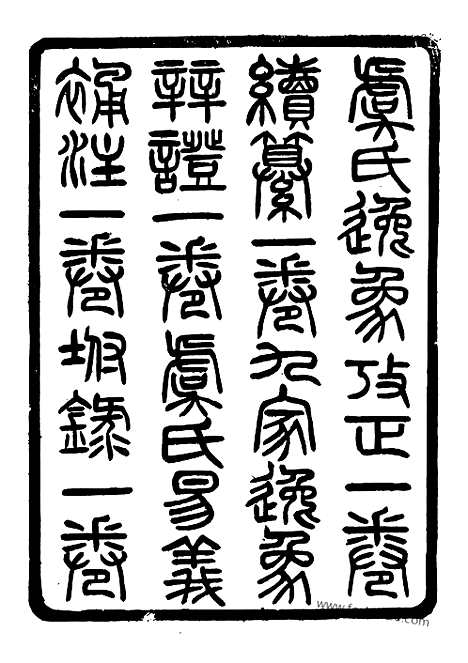 虞氏逸象攷正一卷
續纂一卷九家逸象
辯證一卷虞氏易義
補注一卷坿錄一卷